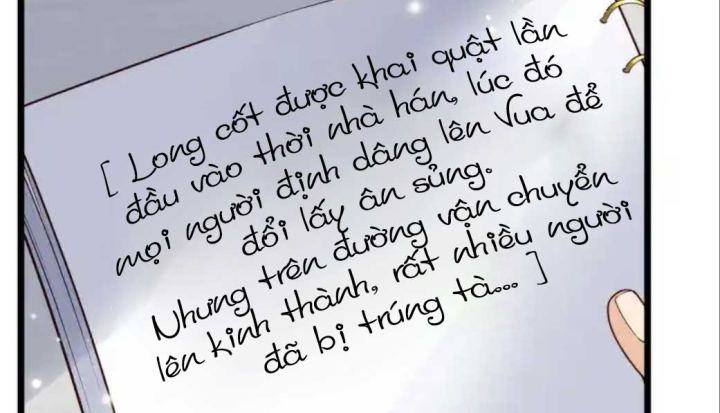 [ Long cốt được khai quật lần
đầu vào thời nhà hán, lúc đó
mọi người định dâng lên Vua để
đổi lấy ân sủng.
Nhưng trên đường vận chuyển
lên kinh thành, rất nhiều người
đã bị trúng tà... ]